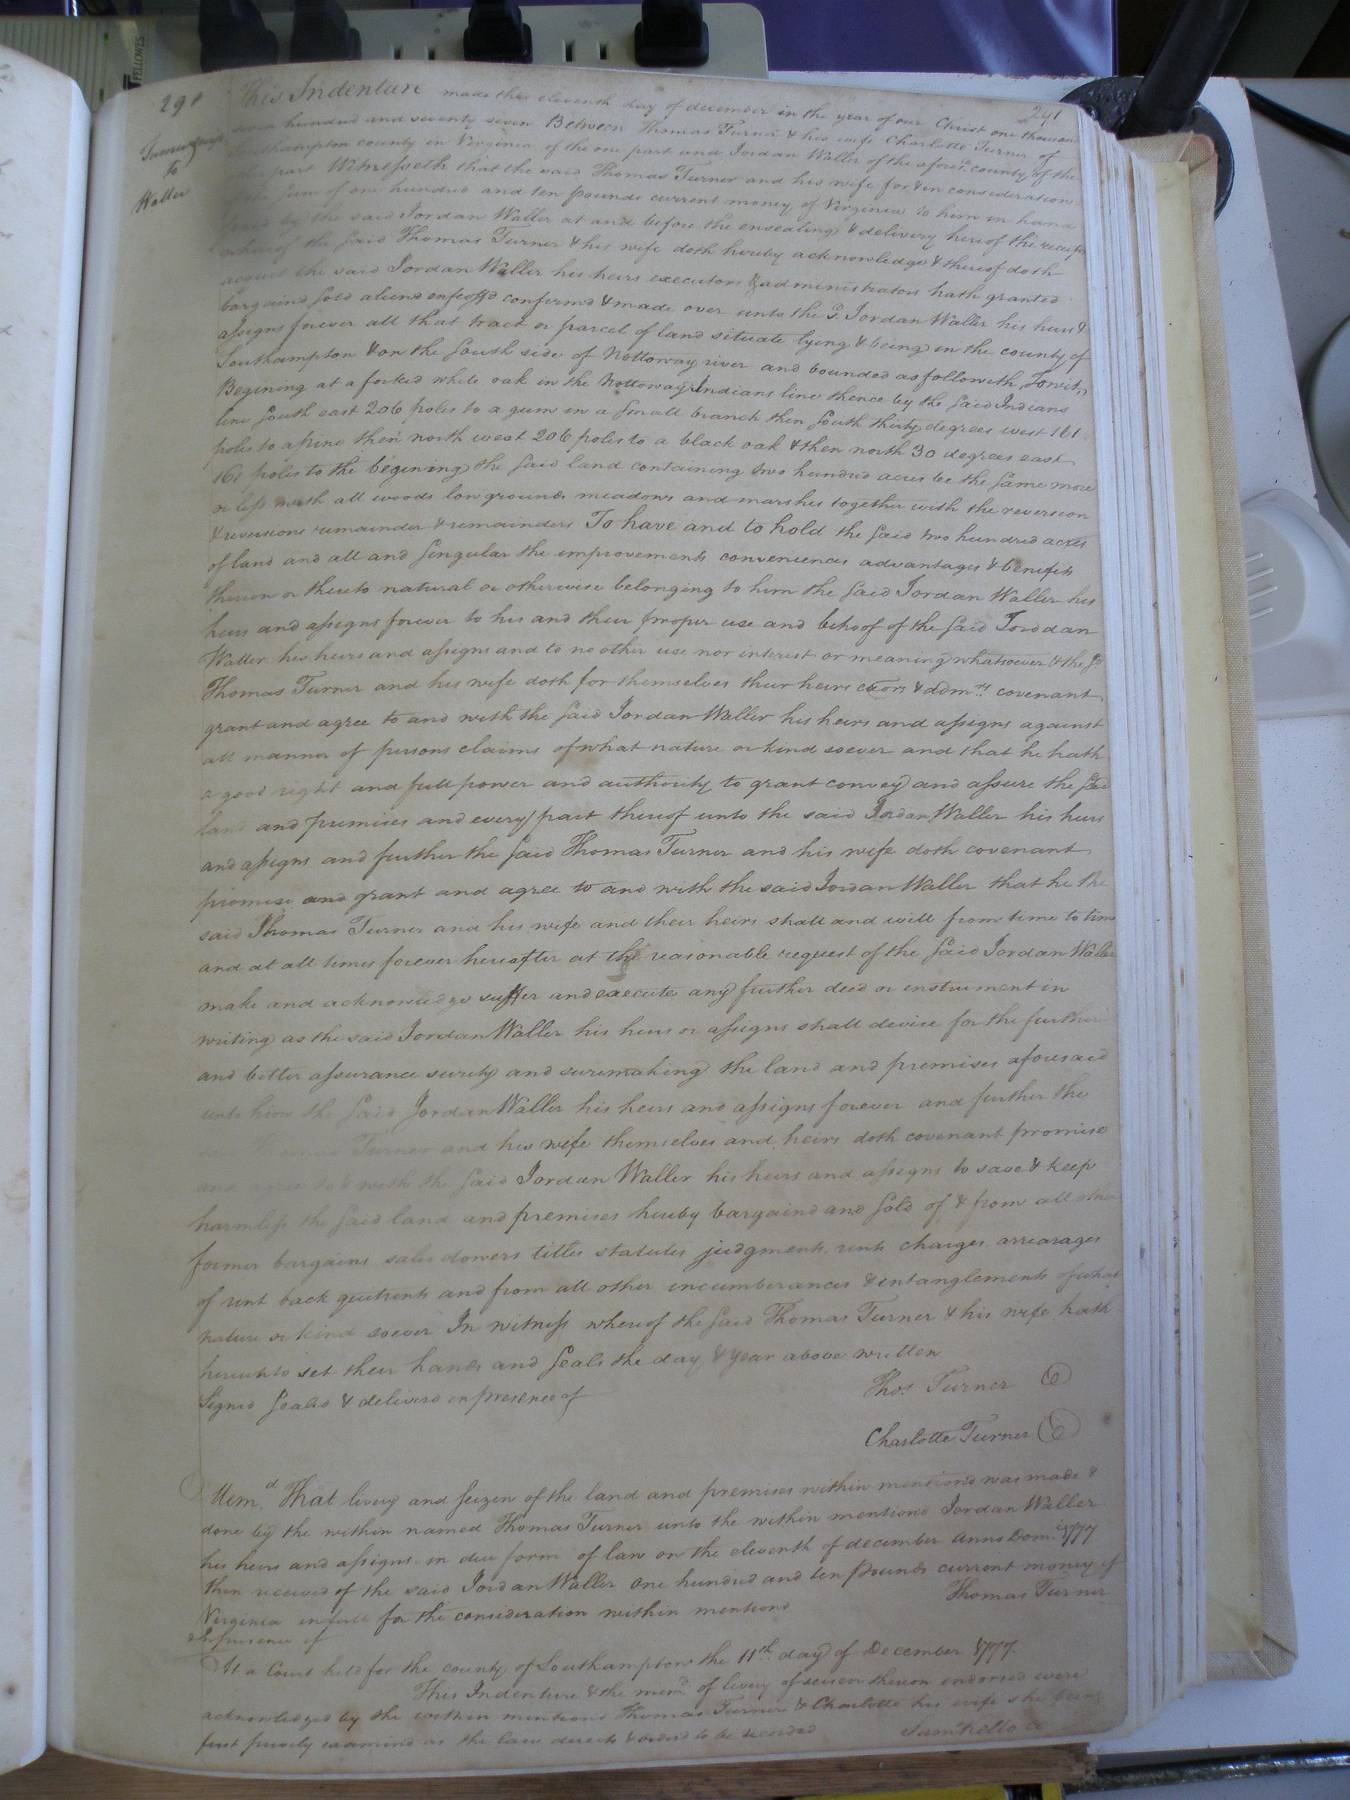 FELLOWES
291
291
Turner &c
to
Waller
This Indenture made this eleventh day of december in the year of our Christ one thousand
seven hundred and seventy seven Between Thomas Turner & his wife Charlotte Turner of
Southampton county in Virginia of the one part and Jordan Waller of the afores.d county of the
other part Witnesseth that the said Thomas Turner and his wife for & in consideration
of the sum of one hundred and ten pounds current money of Virginia to him in hand
paid by the said Jordan Waller at and before the ensealing & delivery hereof the receipt
whereof the said Thomas Turner & his wife doth hereby acknowledge & thereof doth
acquit the said Jordan Waller his heirs executors & administrators hath granted
bargaind sold aliend enfeoffd confirmd & made over unto the s.d Jordan Waller his heirs &
assigns forever all that tract or parcel of land situate lying & being in the county of
Southampton & on the south side of Nottoway river and bounded as followeth, Towit,
Begining at a forked white oak in the Nottoway Indians line thence by the said Indians
line south east 206 poles to a gum in a small branch then south thirty degrees west 161
poles to a pine then north west 206 poles to a black oak & then north 30 degrees east
161 poles to the begining the said land containing two hundred acres be the same more
or less with all woods low grounds meadows and marshes together with the reversion
& reversions remainder & remainders To have and to hold the said two hundred acres
of land and all and singular the improvements conveniences advantages & benefits
thereon or thereto natural or otherwise belonging to him the said Jordan Waller his
heirs and assigns forever to his and their proper use and behoof of the said Jorddan
Waller his heirs and assigns and to no other use nor interest or meaning whatsoever & the s.d
Thomas Turner and his wife doth for themselves their heirs exors & adm.rs covenant
grant and agree to and with the said Jordan Waller his heirs and assigns against
all manner of persons claims of what nature or kind soever and that he hath
a good right and full power and authority to grant convey and assure the said
land and premises and every part thereof unto the said Jordan Waller his heirs
and assigns and further the said Thomas Turner and his wife doth covenant
promise and grant and agree to and with the said Jordan Waller that he the
said Thomas Turner and his wife and their heirs shall and will from time to time
and at all times forever hereafter at the reasonable request of the said Jordan Waller
make and acknowledge suffer and execute any further deed or instrument in
writing as the said Jordan Waller his heirs or assigns shall devise for the further
and better assurance surety and suremaking the land and premises aforesaid
unto him the said Jordan Waller his heirs and assigns forever and further the
said Thomas Turner and his wife themselves and heirs doth covenant promise
and agree to & with the said Jordan Waller his heirs and assigns to save & keep
harmless the said land and premises hereby bargaind and sold of & from all other
former bargains sales dowers titles statutes judgments rents charges arrearages
of rent back quitrents and from all other incumberances & entanglements of what
nature or kind soever In witness whereof the said Thomas Turner & his wife hath
hereunto set their hands and seals the day & year above written
Signd seald & deliverd in presence of
Thos. Turner
Charlotte Turner
Mem.d That livery and seizen of the land and premises within mentiond was made &
done by the within named Thomas Turner unto the within mentiond Jordan Waller
his heirs and assigns in due form of law on the eleventh of december Anno Dom. 1777
then received of the said Jordan Waller one hundred and ten pounds current money of
Virginia in full for the consideration within mentiond
Thomas Turner
In presence of
At a Court held for the county of Southampton the 11th day of December 1777
This Indenture & the mem.d of livery of seisen thereon endorsed were
acknowledged by the within mentiond Thomas Turner & Charlotte his wife she being
first privily examined as the law directs & orderd to be recorded